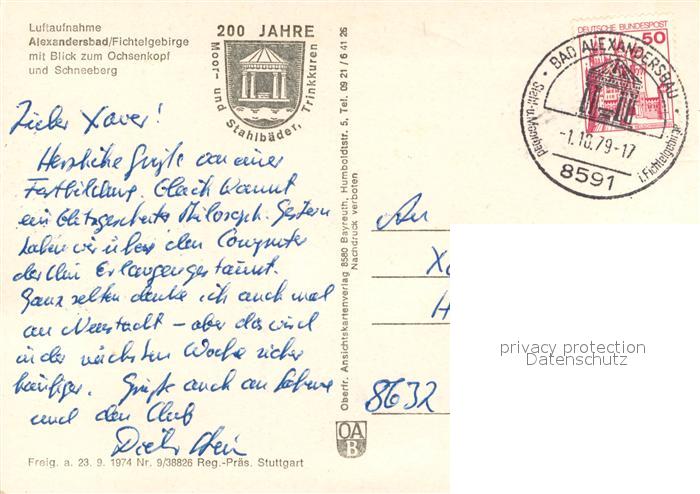 Luftaufnahme
Alexandersbad/Fichtelgebirge
mit Blick zum Ochsenkopf
und Schneeberg
200 JAHRE
Moor- und Stahlbäder, Trinkkuren
Lieber Xaver!
Herzliche Grüße von einer
Fortbildung. Gleich kommt
ein blitzgescheiter Philosoph. Gestern
haben wir über den Computer
der Uni Erlangen gestaunt.
Ganz selten denke ich auch mal
an Neustadt – aber das wird
in der nächsten Woche sicher
häufiger. Grüße auch an
und den Club
Dieter
Freig. a. 23. 9. 1974 Nr. 9/38826 Reg.-Präs. Stuttgart
Oberfr. Ansichtskartenverlag 8580 Bayreuth, Humboldtstr. 5, Tel. 09 21 / 6 41 26
Nachdruck verboten
OA
B
DEUTSCHE BUNDESPOST
50
BAD ALEXANDERSBAD
-1.10.79-17
8591
i. Fichtelgebirge
An
X
H
8632
privacy protection
Datenschutz